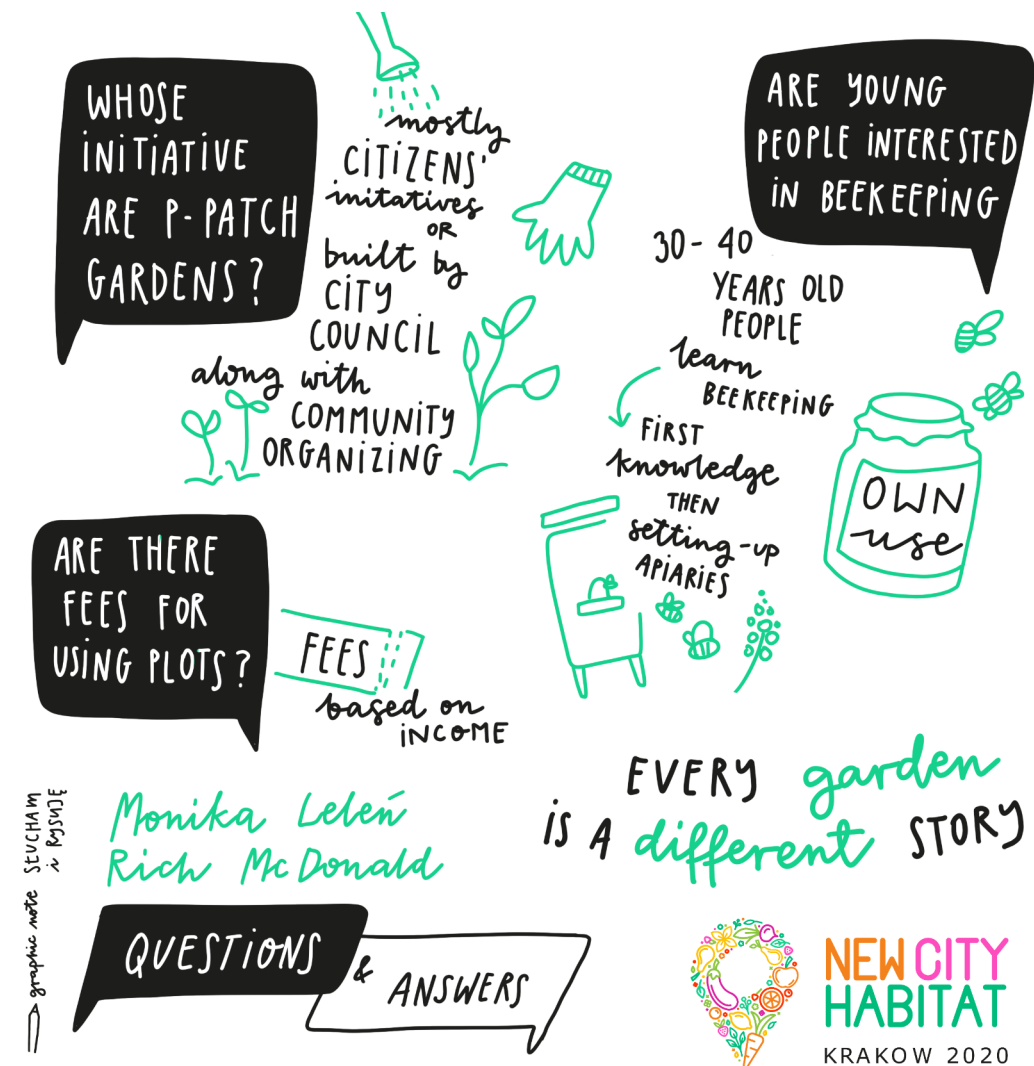 WHOSE
INITIATIVE
ARE P-PATCH
GARDENS?
mostly
CITIZENS'
initatives
OR
built by
CITY
COUNCIL
along with
COMMUNITY
ORGANIZING
ARE YOUNG
PEOPLE INTERESTED
IN BEEKEEPING
30-40
YEARS OLD
PEOPLE
learn
BEEKEEPING
FIRST
knowledge
THEN
setting-up
APIARIES
OWN
use
ARE THERE
FEES FOR
USING PLOTS?
FEES
based on
INCOME
EVERY garden
IS A different STORY
Monika Leleń
Rich McDonald
graphic note SŁUCHAM
i RYSUJĘ
QUESTIONS
&
ANSWERS
NEW CITY
HABITAT
KRAKOW 2020